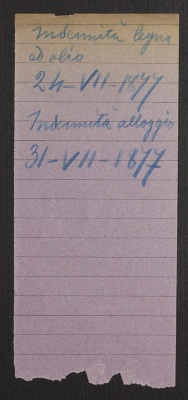 Indennità legna
ed olio
24-VII-1877
Indennità alloggio
31-VII-1877